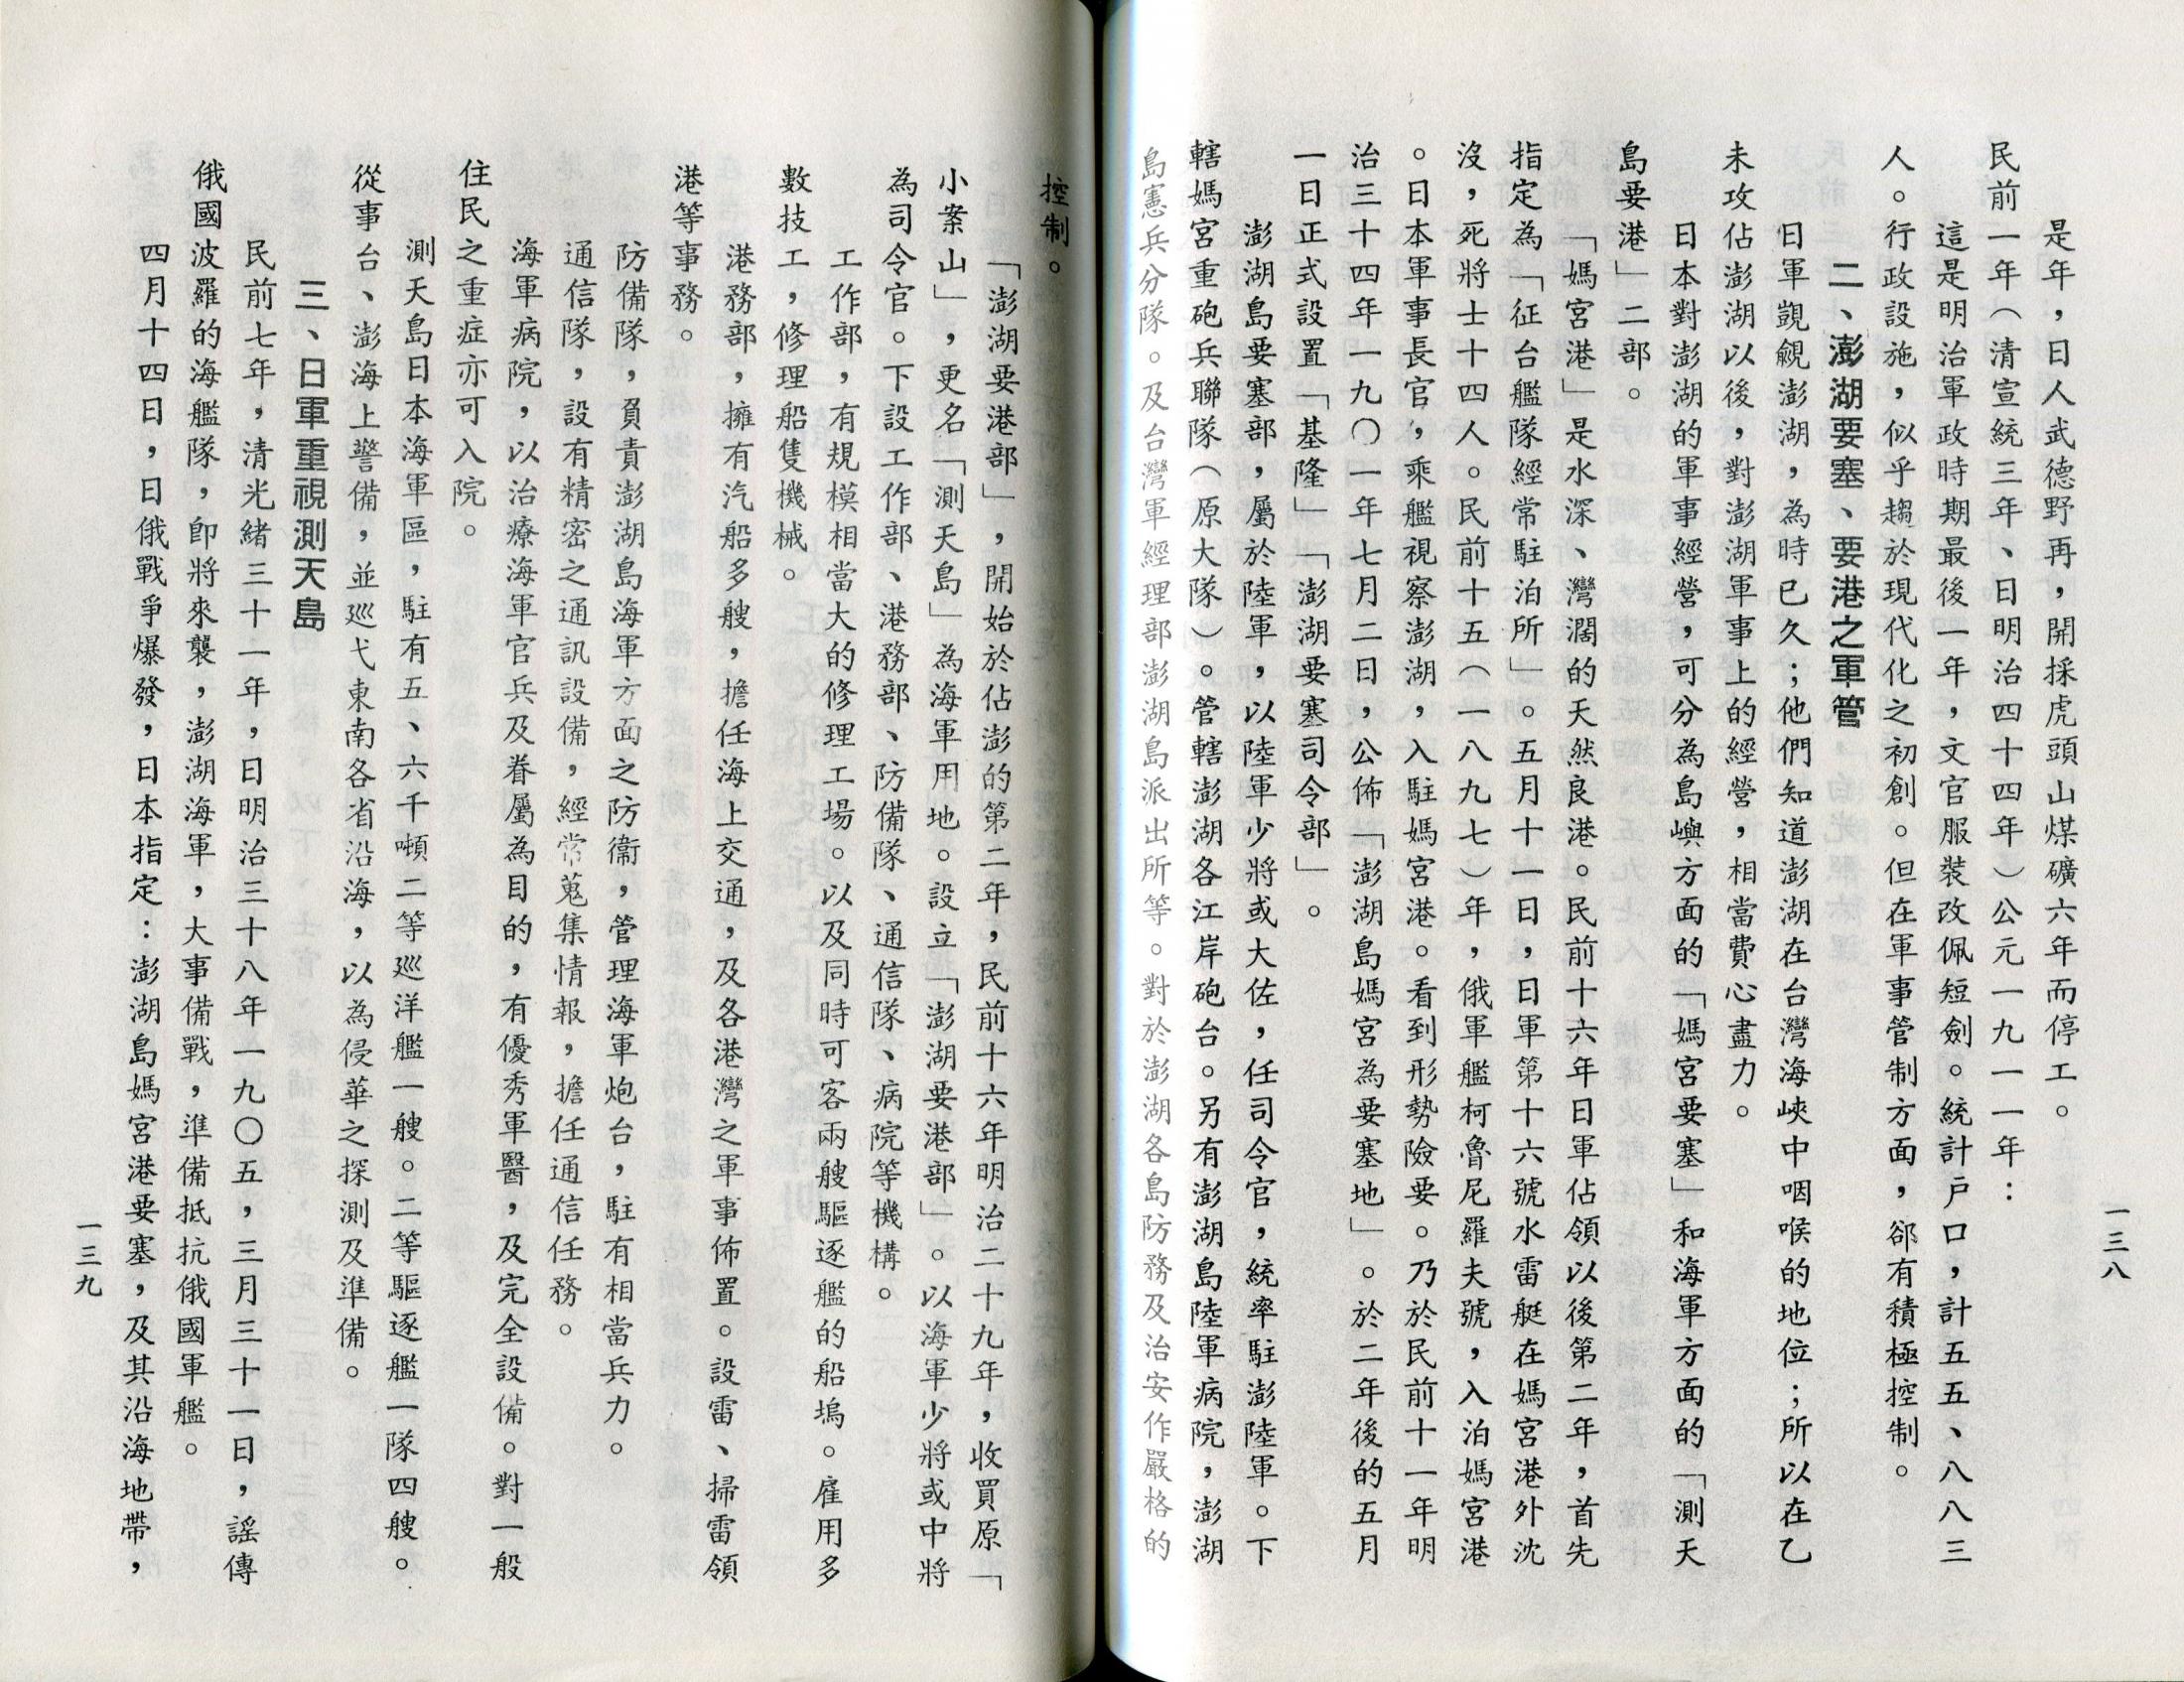 一三八
是年，日人武德野再，開採虎頭山煤礦六年而停工。
民前一年（清宣統三年、日明治四十四年）公元一九一一年：
這是明治軍政時期最後一年，文官服裝改佩短劍。統計戶口，計五五、八八三
人。行政設施，似乎趨於現代化之初創。但在軍事管制方面，郤有積極控制。
二、澎湖要塞、要港之軍管
日軍覬覦澎湖，為時已久；他們知道澎湖在台灣海峽中咽喉的地位；所以在乙
未攻佔澎湖以後，對澎湖軍事上的經營，相當費心盡力。
日本對澎湖的軍事經營，可分為島嶼方面的「媽宮要塞」和海軍方面的「測天
島要港」二部。
「媽宮港」是水深、灣濶的天然良港。民前十六年日軍佔領以後第二年，首先
指定為「征台艦隊經常駐泊所」。五月十一日，日軍第十六號水雷艇在媽宮港外沈
沒，死將士十四人。民前十五（一八九七）年，俄軍艦柯魯尼羅夫號，入泊媽宮港
。日本軍事長官，乘艦視察澎湖，入駐媽宮港。看到形勢險要。乃於民前十一年明
治三十四年一九〇一年七月二日，公佈「澎湖島媽宮為要塞地」。於二年後的五月
一日正式設置「基隆」「澎湖要塞司令部」。
澎湖島要塞部，屬於陸軍，以陸軍少將或大佐，任司令官，統率駐澎陸軍。下
轄媽宮重砲兵聯隊（原大隊）。管轄澎湖各江岸砲台。另有澎湖島陸軍病院，澎湖
島憲兵分隊。及台灣軍經理部澎湖島派出所等。對於澎湖各島防務及治安作嚴格的
控制。
「澎湖要港部」，開始於佔澎的第二年，民前十六年明治二十九年，收買原「
小案山」，更名「測天島」為海軍用地。設立「澎湖要港部」。以海軍少將或中將
為司令官。下設工作部、港務部、防備隊、通信隊、病院等機構。
工作部，有規模相當大的修理工場。以及同時可客兩艘驅逐艦的船塢。雇用多
數技工，修理船隻機械。
港務部，擁有汽船多艘，擔任海上交通，及各港灣之軍事佈置。設雷、掃雷領
港等事務。
防備隊，負責澎湖島海軍方面之防衞，管理海軍炮台，駐有相當兵力。
通信隊，設有精密之通訊設備，經常蒐集情報，擔任通信任務。
海軍病院，以治療海軍官兵及眷屬為目的，有優秀軍醫，及完全設備。對一般
住民之重症亦可入院。
測天島日本海軍區，駐有五、六千噸二等巡洋艦一艘。二等驅逐艦一隊四艘。
從事台、澎海上警備，並巡弋東南各省沿海，以為侵華之探測及準備。
三、日軍重視測天島
民前七年，清光緒三十一年，日明治三十八年一九〇五，三月三十一日，謠傳
俄國波羅的海艦隊，卽將來襲，澎湖海軍，大事備戰，準備抵抗俄國軍艦。
四月十四日，日俄戰爭爆發，日本指定：澎湖島媽宮港要塞，及其沿海地帶，
一三九